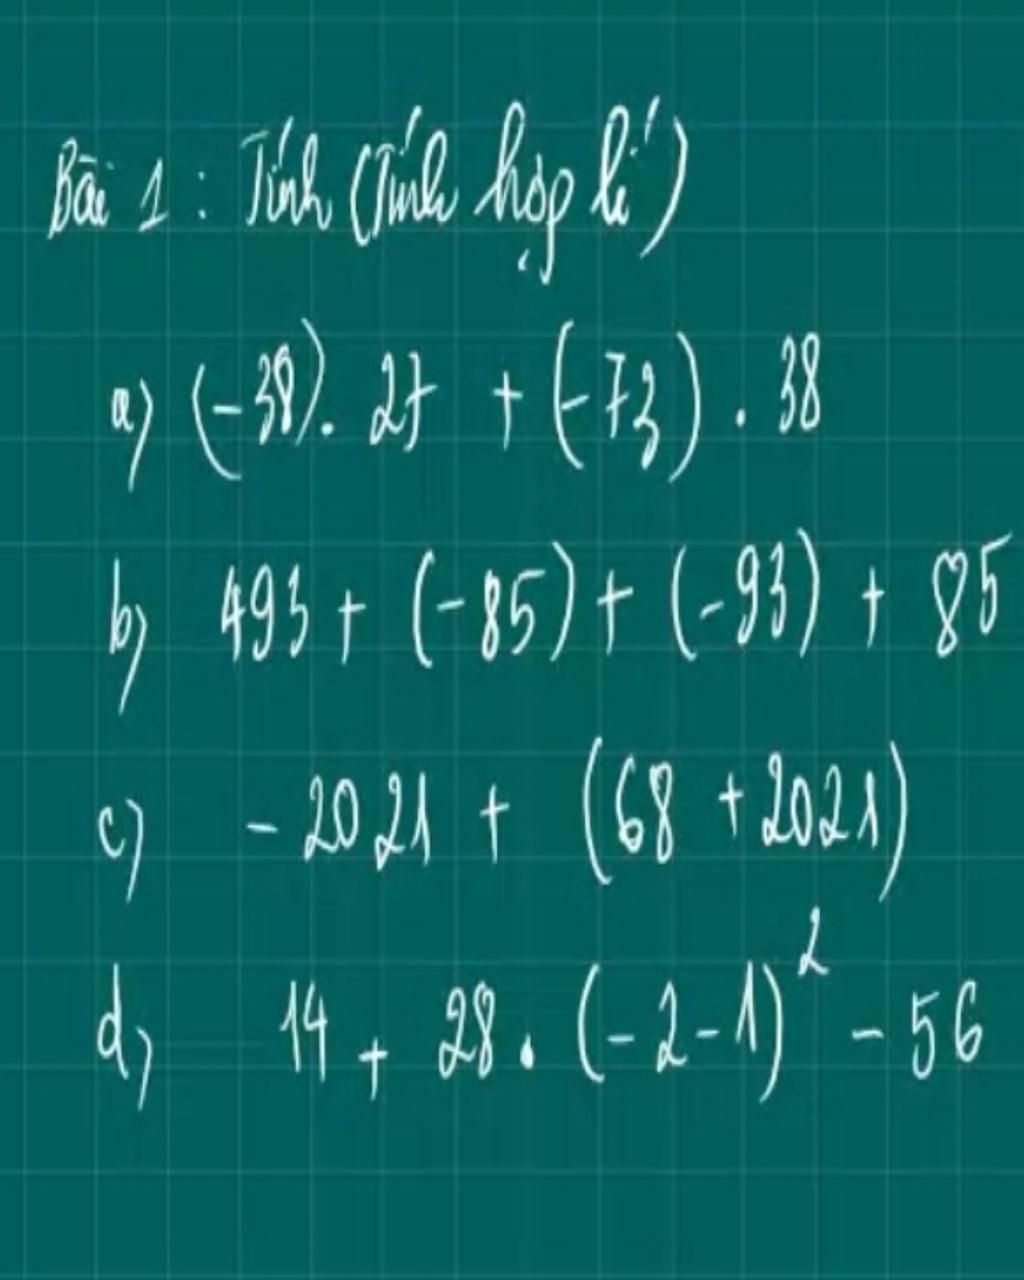 Bài 1 : Tính (Tính hợp lí)
a) (-38). 27 + (-73) . 38
b) 493 + (-85) + (-93) + 85
c) - 2021 + (68 + 2021)
d) 14 + 28 . (-2-1)² - 56